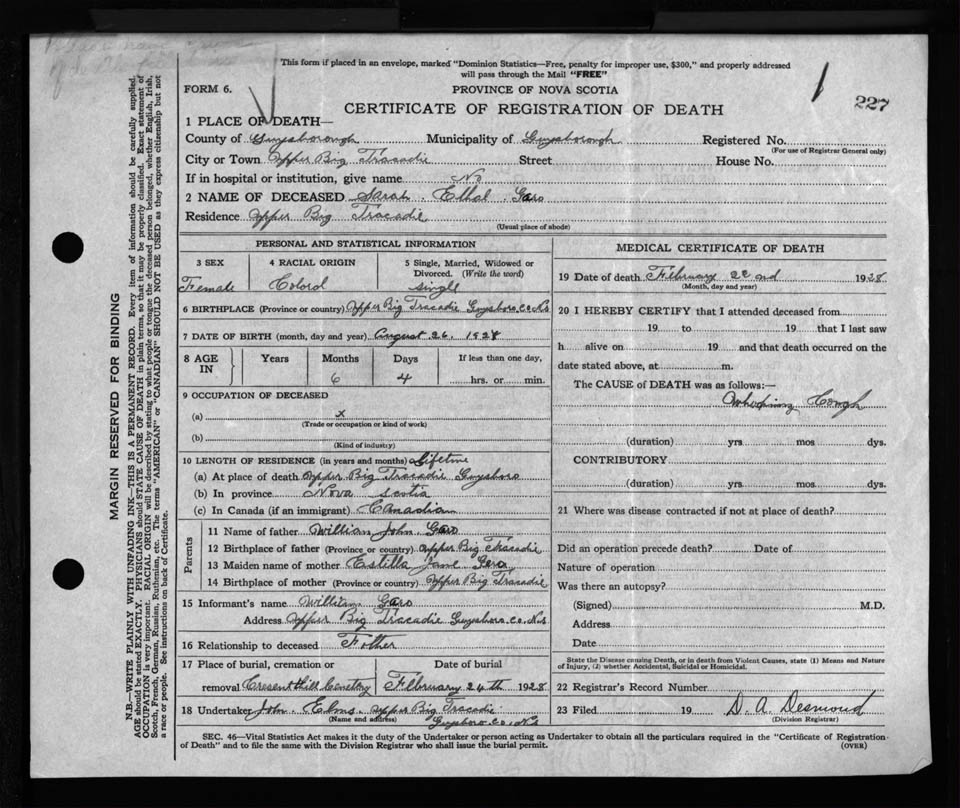 This form if placed in an envelope, marked "Dominion Statistics—Free, penalty for improper use, $300," and properly addressed
will pass through the Mail "FREE"
FORM 6.
PROVINCE OF NOVA SCOTIA
227
CERTIFICATE OF REGISTRATION OF DEATH
1 PLACE OF DEATH—
County of Guysborough Municipality of Guysborough Registered No.
(For use of Registrar General only)
City or Town Upper Big Tracadie Street House No.
If in hospital or institution, give name No
2 NAME OF DECEASED Sarah Ethel Gero
Residence Upper Big Tracadie
(Usual place of abode)
PERSONAL AND STATISTICAL INFORMATION
3 SEX 4 RACIAL ORIGIN 5 Single, Married, Widowed or
Divorced. (Write the word)
Female Colord single
6 BIRTHPLACE (Province or country) Upper Big Tracadie Guysboro. Co. N.S
7 DATE OF BIRTH (month, day and year) August 26. 1928
8 AGE IN Years Months Days If less than one day,
6 4 hrs. or min.
9 OCCUPATION OF DECEASED
(a) x
(Trade or occupation or kind of work)
(b)
(Kind of industry)
10 LENGTH OF RESIDENCE (in years and months) Lifetime
(a) At place of death Upper Big Tracadie Guysboro
(b) In province Nova Scotia
(c) In Canada (if an immigrant) Canadian
Parents
11 Name of father William John Gero
12 Birthplace of father (Province or country) Upper Big Tracadie
13 Maiden name of mother Estella Jane Gero
14 Birthplace of mother (Province or country) Upper Big Tracadie
15 Informant's name William Gero
Address Upper Big Tracadie Guysboro. Co. N.S
16 Relationship to deceased Father
17 Place of burial, cremation or Date of burial
removal Cresent Hill Cemetery February 24th 1928
18 Undertaker John Elms. Upper Big Tracadie
(Name and address) Guysboro. Co. N.S
MEDICAL CERTIFICATE OF DEATH
19 Date of death February 22nd 1928
(Month, day and year)
20 I HEREBY CERTIFY that I attended deceased from
19 to 19 that I last saw
h alive on 19 and that death occurred on the
date stated above, at m.
The CAUSE of DEATH was as follows:—
Whooping Cough
(duration) yrs mos dys.
CONTRIBUTORY
(duration) yrs mos dys.
21 Where was disease contracted if not at place of death?
Did an operation precede death? Date of
Nature of operation
Was there an autopsy?
(Signed) M.D.
Address
Date
State the Disease causing Death, or in death from Violent Causes, state (1) Means and Nature
of Injury, (2) whether Accidental, Suicidal or Homicidal.
22 Registrar's Record Number
23 Filed 19 D. A. Desmond
(Division Registrar)
SEC. 46—Vital Statistics Act makes it the duty of the Undertaker or person acting as Undertaker to obtain all the particulars required in the "Certificate of Registration
of Death" and to file the same with the Division Registrar who shall issue the burial permit.
(OVER)
MARGIN RESERVED FOR BINDING
N.B.—WRITE PLAINLY WITH UNFADING INK—THIS IS A PERMANENT RECORD. Every item of information should be carefully supplied.
AGE should be stated EXACTLY. PHYSICIANS should STATE CAUSE OF DEATH in plain terms, so that it may be properly classified. Exact statement of
OCCUPATION is very important. RACIAL ORIGIN will be described by stating to what people or tongue the deceased person belonged, whether English, Irish,
Scotch, French, German, Russian, Ruthenian, etc. The terms "AMERICAN" or "CANADIAN" SHOULD NOT BE USED as they express citizenship but not
a race or people. See instructions on back of Certificate.